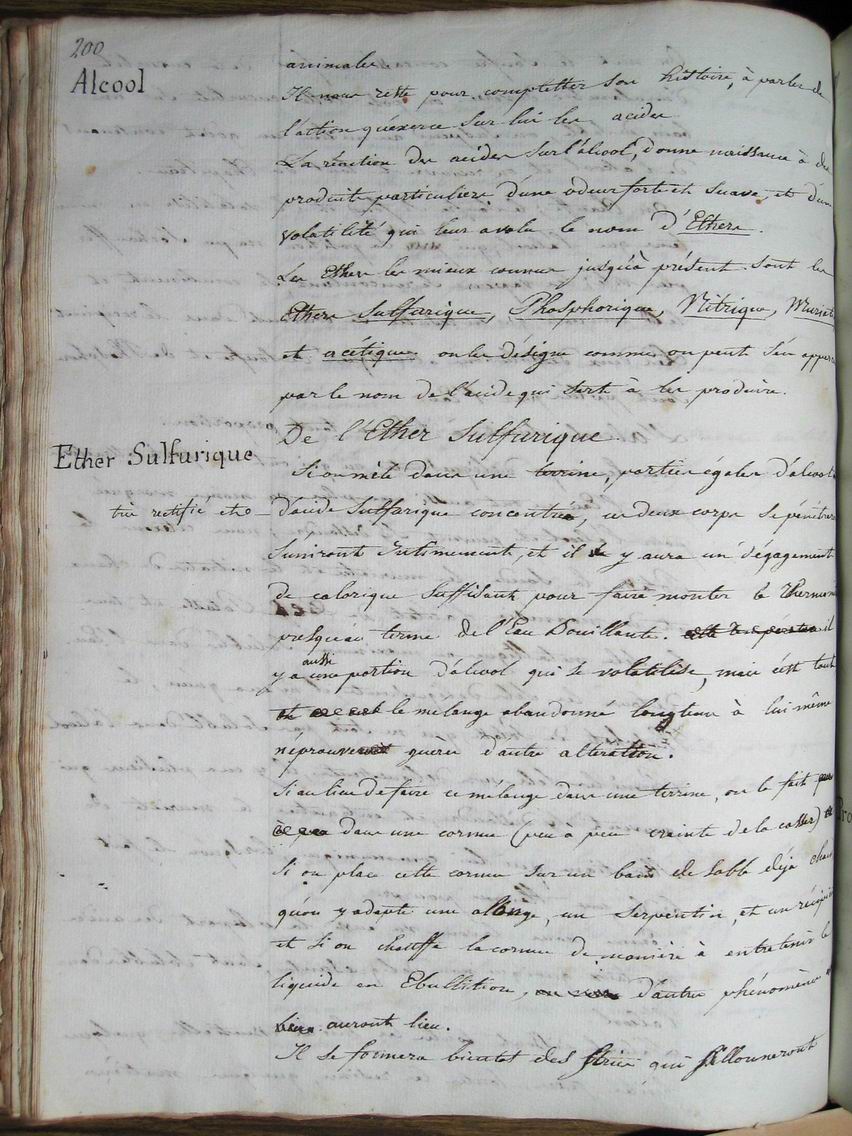 200
Alcool
animales
Il nous reste pour completter son histoire, à parler de
l'action qu'exerce sur lui les acides
La réaction des acides sur l'alcool, donne naissance à des
produits particuliers d'une odeur forte et suave, et d'une
volatilité qui leur a valu le nom d'Ethers.
Les Ethers les mieux connus jusqu'à présent sont les
Ethers Sulfurique, Phosphorique, Nitrique, Muriat
et acétique. on les désigne comme on peut s'en apperce
par le nom de l'acide qui sert à les produire.
De l'Ether Sulfurique
Ether Sulfurique
Si on mêle dans une terrine, parties égales d'alcool
très rectifié et
d'acide Sulfurique concentré, ces deux corps se pénétrer
s'uniront intimement, et il y aura un dégagement
de calorique suffisant pour faire monter le Thermom
presqu'au terme de l'Eau Bouillante. il
y a aussi une portion d'alcool qui se volatilise, mais c'est tout
le mélange abandonné longtems à lui même
n'éprouve guère d'autre altération.
Si au lieu de faire ce mélange dans une terrine, on le fait
dans une cornue (peu à peu crainte de la casser)
Si on place cette cornue sur un bain de sable déjà chau
qu'on y adapte une allonge, un serpentin, et un récipie
et si on chauffe la cornue de manière à entretenir le
liquide en Ebullition, d'autres phénomènes
auront lieu.
Il se formera bientot des stries qui sillonneront